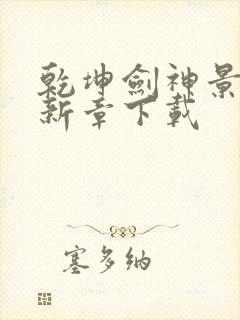 乾坤劍神景
新章下載
塞多納